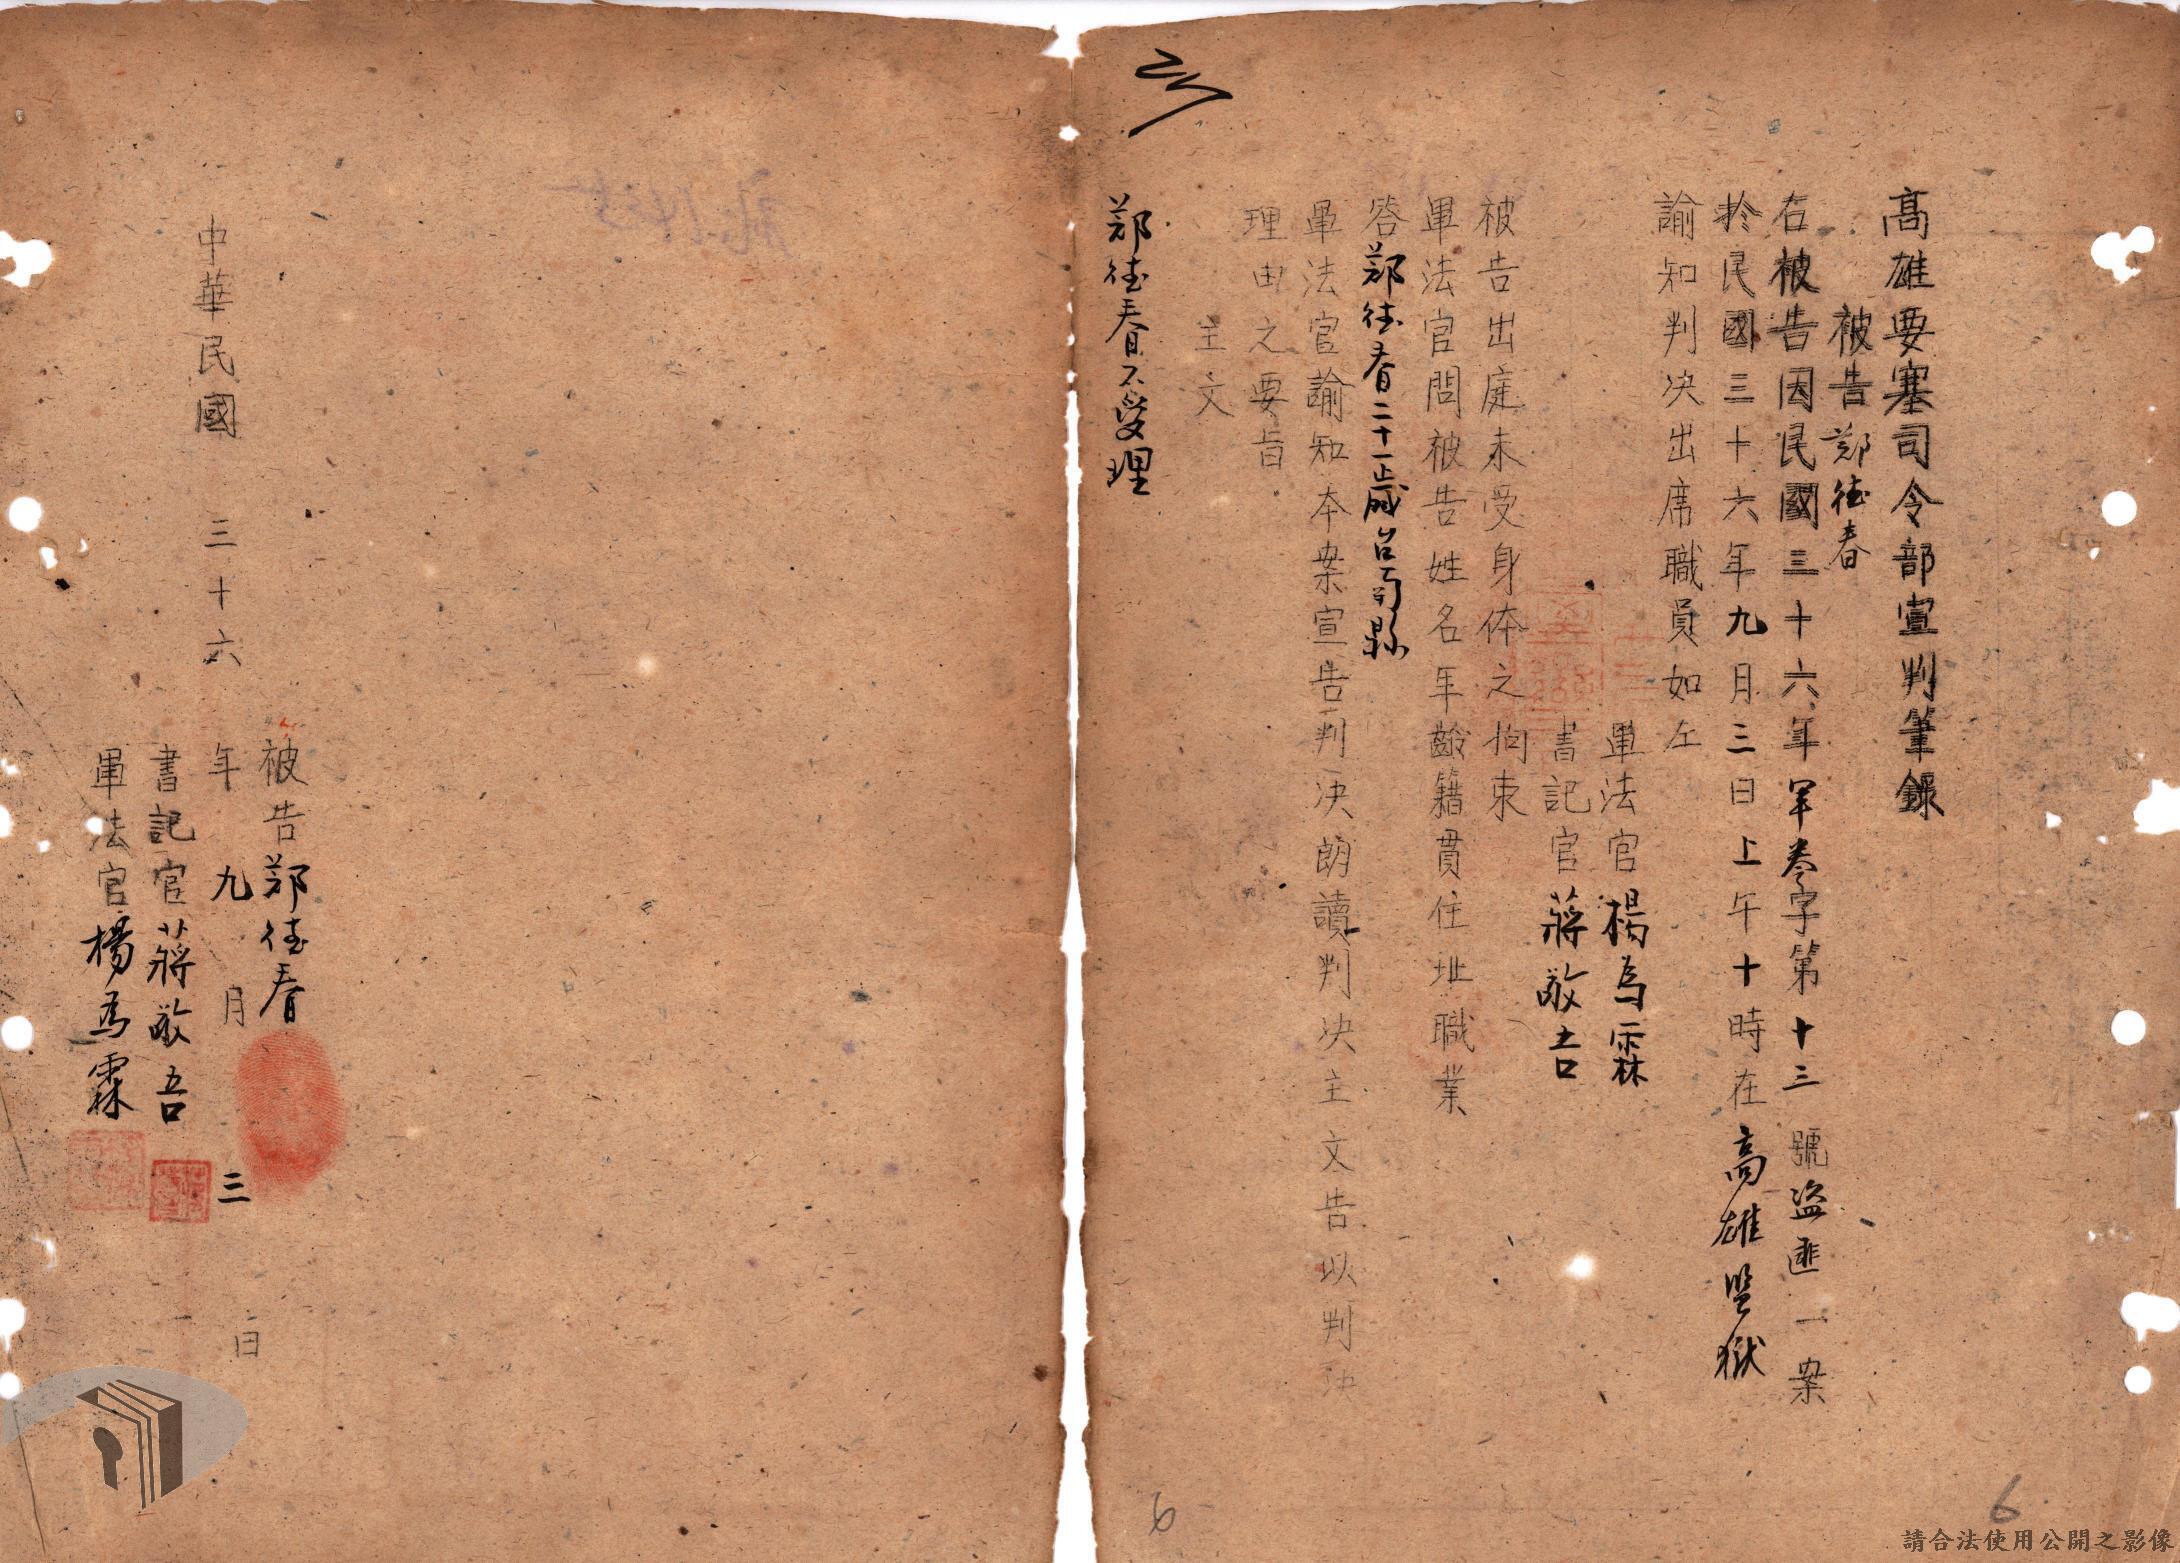 高雄要塞司令部宣判筆錄
被告鄭徳春
右被告因民國三十六年軍卷字第十三號盜匪一案
於民國三十六年九月三日上午十時在高雄監獄
諭知判决出席職員如左
軍法官楊為霖
書記官蔣敬吾
被告出庭未受身体之拘束
軍法官問被告姓名年齡籍貫住址職業
答鄭徳春二十一歲台南縣
軍法官諭知本案宣告判决朗讀判决主文告以判决
理由之要旨
主文
鄭徳春不受理
被告鄭徳春
中華民國三十六年九月三日
書記官蔣敬吾
軍法官楊為霖
6
6
請合法使用公開之影像